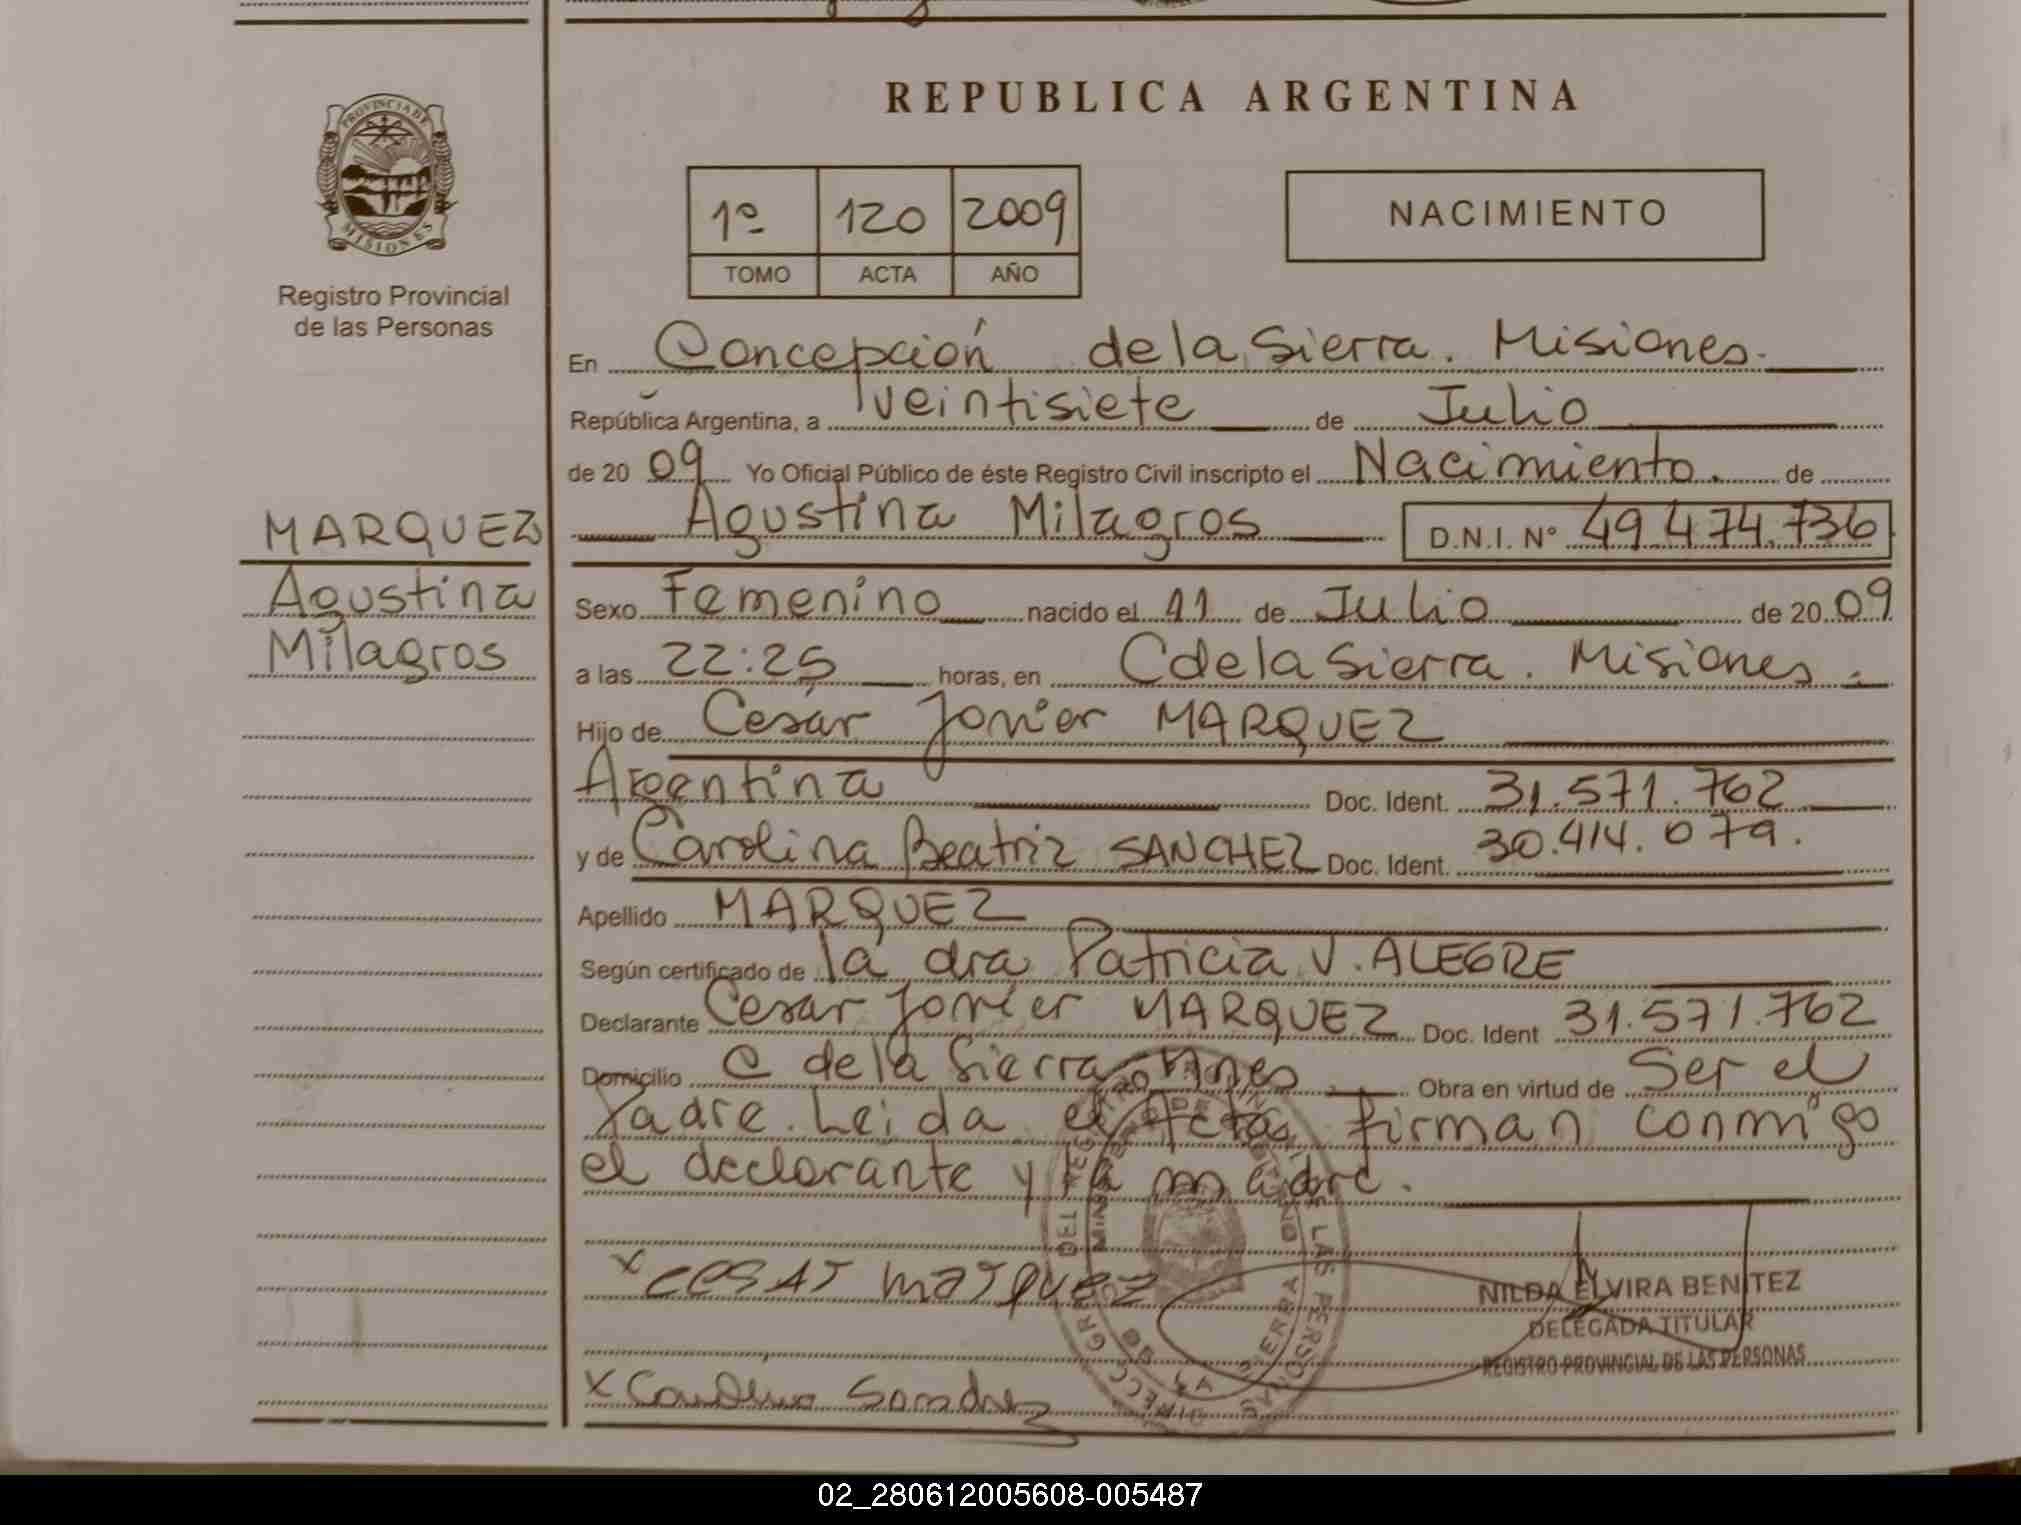 PROVINCIA DE
MISIONES
Registro Provincial
de las Personas
MARQUEZ
Agustina
Milagros
REPUBLICA ARGENTINA
1º 120 2009
TOMO ACTA AÑO
NACIMIENTO
En Concepción de la Sierra. Misiones.
República Argentina, a veintisiete de Julio
de 20 09 Yo Oficial Público de éste Registro Civil inscripto el Nacimiento. de
Agustina Milagros D.N.I. Nº 49.474.736
Sexo Femenino nacido el 11 de Julio de 20 09
a las 22:25 horas, en C de la Sierra. Misiones.
Hijo de Cesar Javier MARQUEZ
Argentina Doc. Ident. 31.571.762
y de Carolina Beatriz SANCHEZ Doc. Ident. 30.414.079.
Apellido MARQUEZ
Según certificado de la dra Patricia V. ALEGRE
Declarante Cesar Javier MARQUEZ Doc. Ident 31.571.762
Domicilio C de la Sierra Mnes. Obra en virtud de Ser el
Padre. Leida el Acta, firman conmigo
el declarante y la madre.
x cesar marquez
NILDA ELVIRA BENITEZ
DELEGADA TITULAR
REGISTRO PROVINCIAL DE LAS PERSONAS
x Carolina Sanchez
02_280612005608-005487